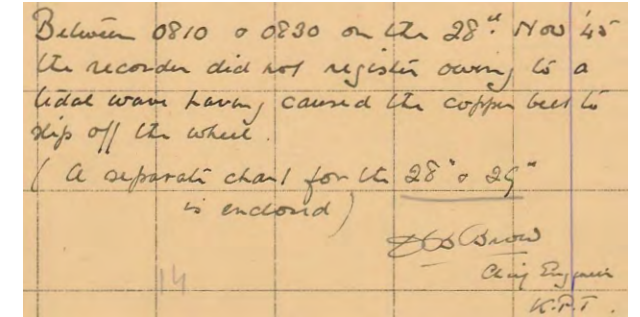 Between 0810 & 0830 on the 28". Nov '45
the recorder did not register owing to a
tidal wave having caused the copper belt to
slip off the wheel.
( A separate chart for the 28" & 29"
is enclosed )
Brow
Chief Engineer
K.P.T.
14